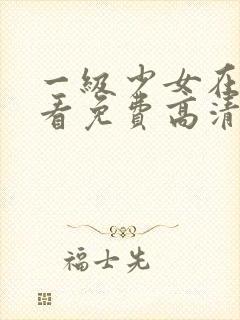 一級少女在
看免費高清
福士先